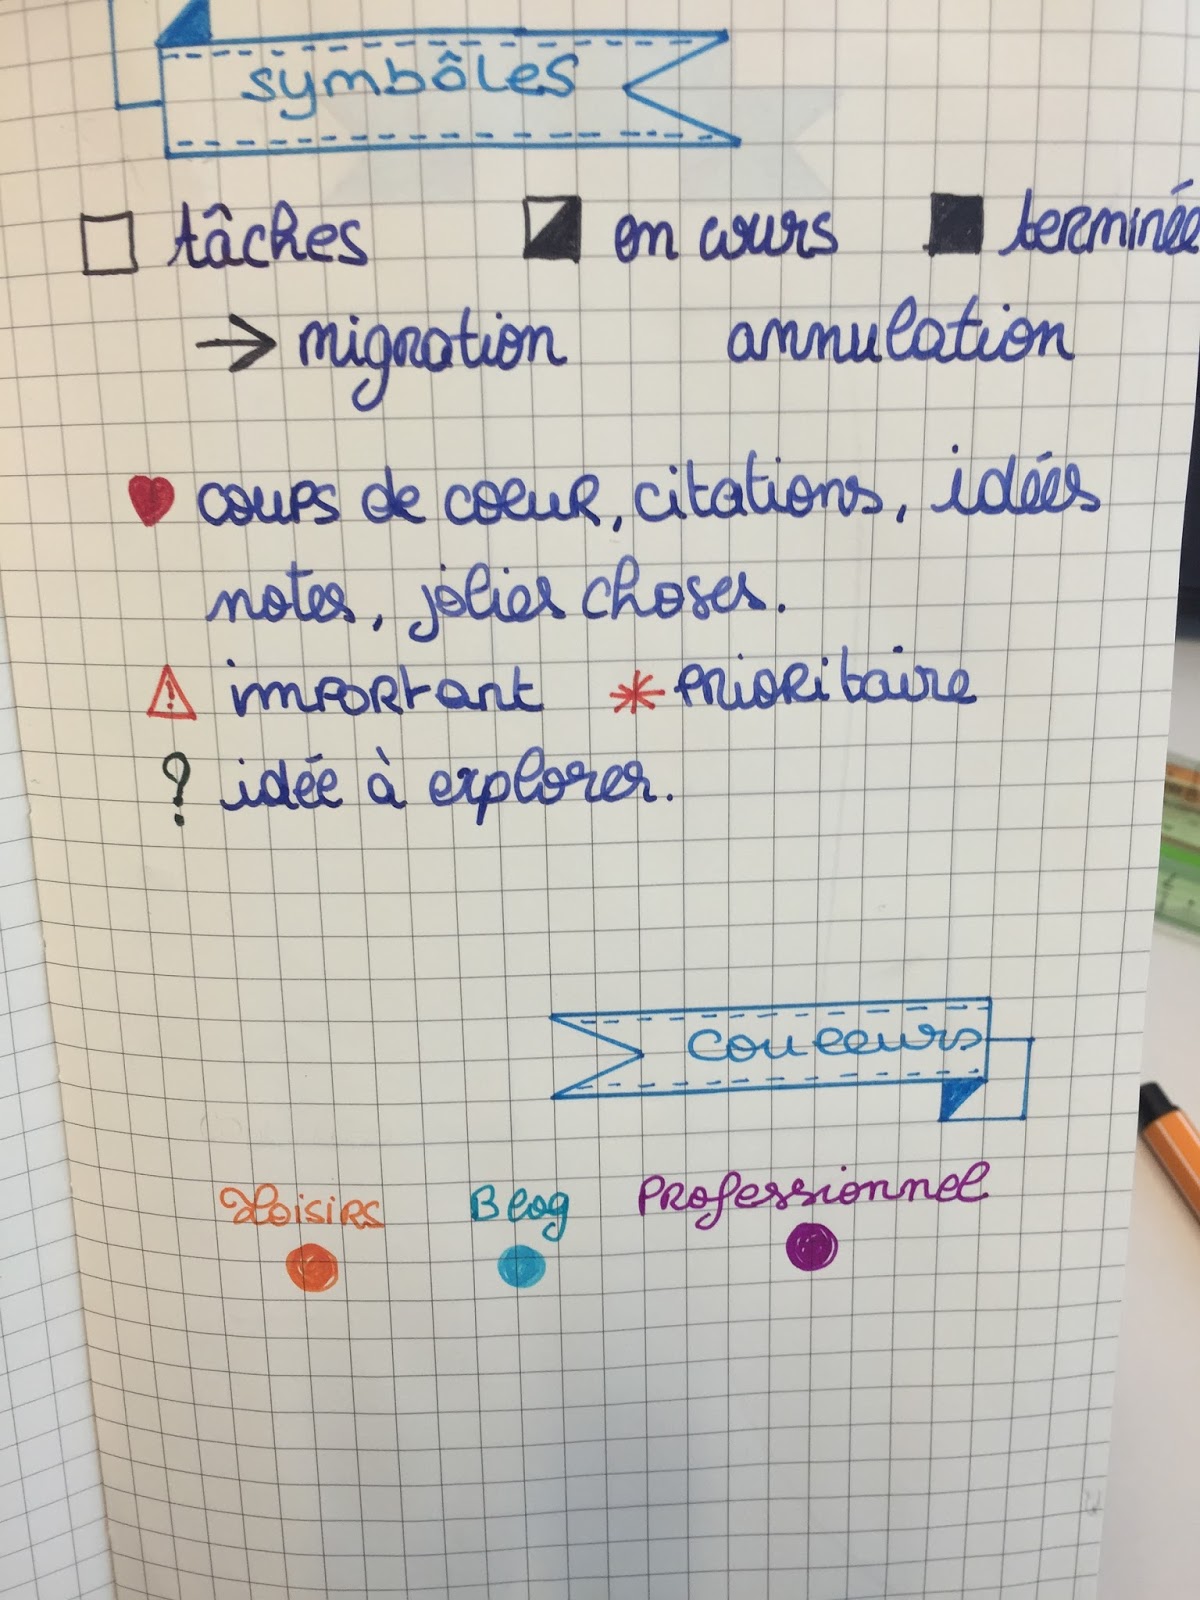 symbôles
tâches en cours terminée
→ migration annulation
coups de coeur, citations, idées
notes, jolies choses.
important * prioritaire
? idée à explorer.
couleurs
Loisirs Blog Professionnel